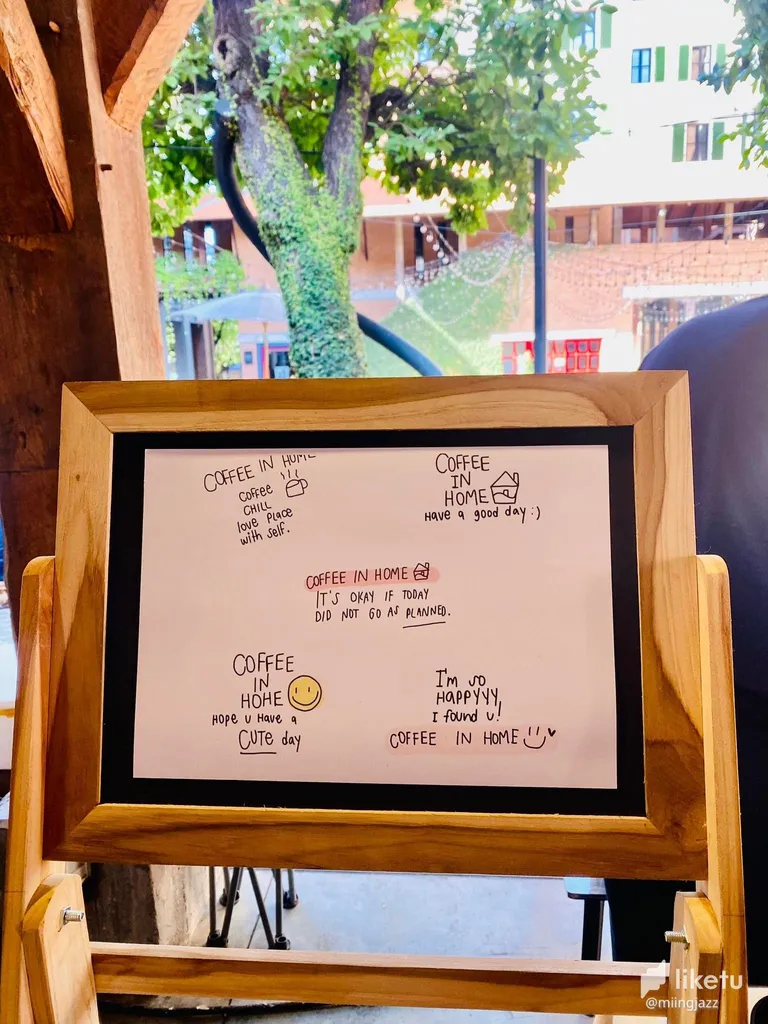 COFFEE IN HOME
COFFEE
CHILL
love PLACE
with self.
COFFEE
IN
HOME
Have a good day :)
COFFEE IN HOME
IT'S OKAY IF TODAY
DID NOT GO AS PLANNED.
COFFEE
IN
HOHE
HOPE U Have a
CUTE day
I'm so
HAPPYYY,
I found u!
COFFEE IN HOME
liketu
@miingjazz